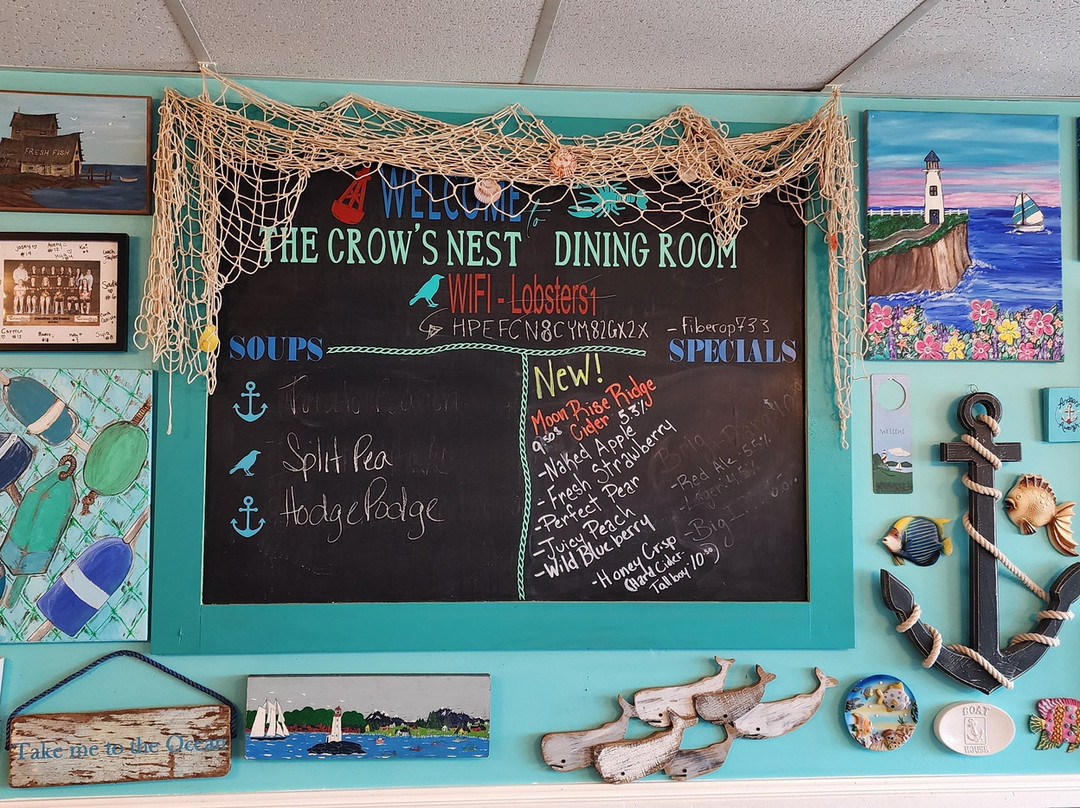 FRESH FISH
WELCOME
to
THE CROW'S NEST DINING ROOM
WIFI - Lobsters1
HPEFCN8CYM82GX2X - Fiberop733
SOUPS
SPECIALS
Split Pea
HodgePodge
New!
Moon Rise Ridge
Cider 5.3%
9.50
- Naked Apple
- Fresh Strawberry
- Perfect Pear
- Juicy Peach
- Wild Blueberry
- Honey Crisp
(Hard Cider
Tallboy 10.50)
- Red Ale - 5.5%
- Lager 4.5%
- Big
welcome
Take me to the Ocean
BOAT
HOUSE